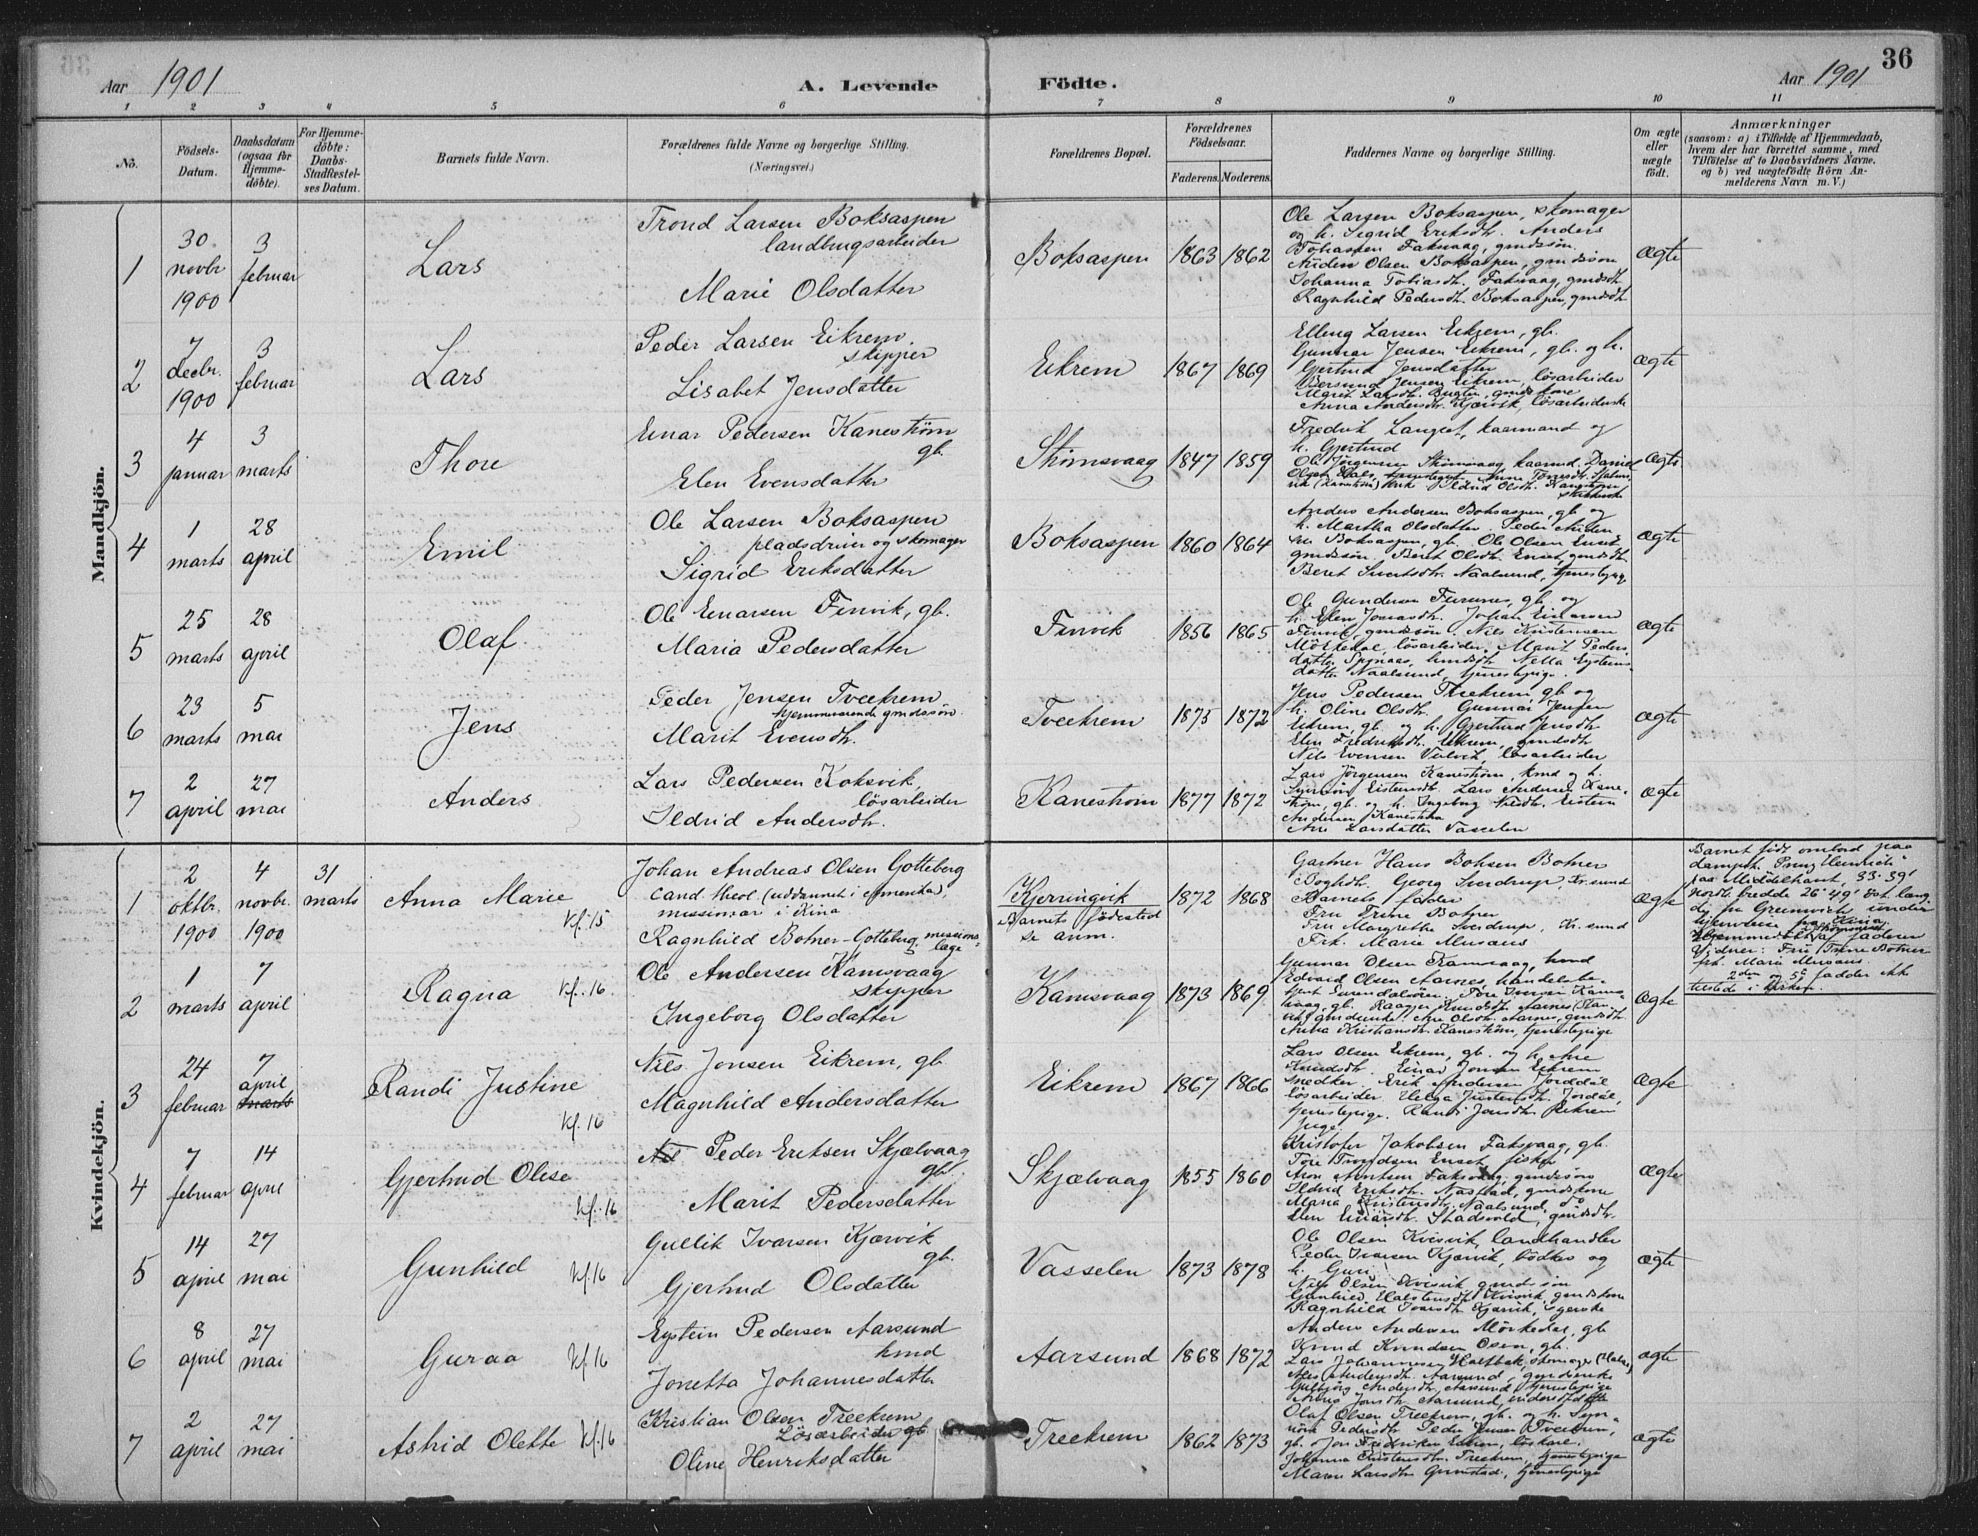 36
Aar 1901
A. Levende Födte.
Aar 1901
1 2 3 4 5 6 7 8 9 10 11
No.
Födsels-Datum.
Daabsdatum (ogsaa for Hjemme-döbte).
For Hjemme-döbte: Daabs-Stadfæstel-ses Datum.
Barnets fulde Navn.
Forældrenes fulde Navne og borgerlige Stilling. (Næringsvei.)
Forældrenes Bopæl.
Forældrenes Födselsaar.
Faderens. Moderens.
Faddernes Navne og borgerlige Stilling.
Om ægte eller uægte födt.
Anmærkninger
(saasom: a) i Tilfælde af Hjemmedaab, hvem der har forrettet samme, med Tilföielse af to Daabsvidners Navne, og b) ved uægtefödte Börn An-melderens Navn m. V.)
Mandkjön.
1
30 novbr 1900
3 februar
Lars
Trond Larsen Boksaspen
landbrugsarbeider
Marie Olsdatter
Boksaspen
1863 1862
Ole Larsen Boksaspen, skomager
og h. Sigrid Eriksdtr. Anders
Tobiassen Faksvaag, gmdssön.
Anders Olsen Boksaspen, gmdssön
Johanna Tobiasdtr. Faksvaag, gmdsdtr.
Ragnhild Pedersdtr. Boksaspen, gmdsdtr
Ægte
2
7 decbr. 1900
3 februar
Lars
Peder Larsen Eikrem,
skipper
Lisabet Jensdatter
Eikrem
1867 1869
Elling Larsen Eikrem, gb.
Gunnar Jensen Eikrem, gb. og h.
Gjertrud Jensdatter
Jensen Eikrem, lösarbeider
Marit Larsdtr.
Anna Andersdtr. Kjærvik,
Ægte
3
4 januar
3 marts
Thore
Einar Pedersen Kaneström
gb.
Elen Evensdatter
Strömsvaag
1847 1859
Fredrik Langset, kaarmand og
h. Gjertrud
Ole Jörgensen Strömsvaag, kaarmd. Daniel
Ildrid Olsdtr. Kaneström
Ægte
4
1 marts
28 april
Emil
Ole Larsen Boksaspen
pladsdriver og skomager
Sigrid Eriksdatter
Boksaspen
1860 1864
Anders Andersen Boksaspen, gb og
h. Martha Olsdatter. Peder
Boksaspen, gb. Ole Olsen Enset
gmdssön. Beret Olsdtr. Enset, gmdsdtr
Beret Naalsund, tjenestepige
Ægte
5
25 marts
28 april
Olaf
Ole Einarsen Finvik, gb.
Maria Pedersdatter
Finvik
1856 1865
Ole Gundersen Furunes, gb og
h. Elen Jonasdtr. Johan Einarsen
Finvik, gmdssön. Nils Kristensen
Mörkedal, lösarbeider, Marit Peders-
datter
datter Naalsund, tjenestepige
Ægte
6
23 marts
5 mai
Jens
Peder Jensen Tveekrem
hjemmeværende gmdssön
Marit Evensdtr.
Tveekrem
1875 1872
Jens Pedersen Tveekrem, gb og
h. Oline Olsdtr. Gunnar Jensen
Eikrem, gb. og h. Gjertrud Jensdtr
Elen Fredriksdtr. Eikrem, gmdsdtr
Nils Evensen Vulvik, lösarbeider
Ægte
7
2 april
27 mai
Anders
Lars Pedersen Koksvik,
lösarbeider
Ildrid Andersdtr.
Kaneström
1877 1872
Lars Jörgensen Kaneström, kmd og h.
Eistensdtr. Lars Andersen Kane-
ström, gb. og h. Ingeborg
Andersen Kaneström
Ane Larsdatter Vasselen
Ægte
Kvindekjön.
1
2 oktbr. 1900
4 novbr. 1900
31 marts
Anna Marie
kf. 15
Johan Andreas Olsen Gotteberg
Cand. theol. (uddannet i Amerika),
missionær i Kina
Ragnhild Botner-Gotteberg, missions-
læge
Kjerringvik
Barnets födested
se anm.
1872 1868
Gartner Hans Botner
Georg Sverdrup, Kr.sund
Barnets fader
Fru Trine Botner
Fru Margrethe Sverdrup, Kr. sund
Frk. Marie Musaus
Ægte
Barnet födt ombord paa
dampsk. "Prinz Heinrich"
paa Middelhavet, 33° 39'
nordl. bredde 26° 49' öst. læng-
de fra Greenwich under
hjemreise fra Kina.
Hjemmedöbt af faderen
Vidner: Fru Trine Botner
frk. Marie Musaus
2den og 5te fadder ikke
tilstede i kirken.
2
1 marts
7 april
Ragna
kf. 16
Ole Andersen Kamsvaag
skipper
Ingeborg Olsdatter
Kamsvaag
1873 1869
Gunnar Olsen Kamsvaag, kmd
Edvard Olsen Aarnes, handelsbe-
vaag, gb. Knudsdtr. Aarnes
Ane Olsdtr. Aarnes, gmdsdtr.
Anna Kristiansdtr. Kaneström, tjenestepige
Ægte
3
24 februar
7 april
marts
Randi Justine
kf. 16
Nils Jonsen Eikrem, gb.
Magnhild Andersdatter
Eikrem
1867 1866
Lars Olsen Eikrem, gb. og h. Ane
Knudsdtr. Einar Jonsen Eikrem
snedker. Erik Andersen Jordal,
lösarbeider. Helga Justensdtr. Jordal,
tjenestepige. Randi Jonsdtr. Eikrem
pige
Ægte
4
7 februar
14 april
Gjertrud Olise
kf. 16
Peder Eriksen Skjælvaag
gb.
Marit Pedersdatter
Skjælvaag
1855 1860
Kristofer Jakobsen Faksvaag, gb.
Tore Trondsen Enset, fisker
Aron Arntsen Faksvaag, gmdssön
Ildrid Eriksdtr. Nastad, gmdskone
Maria Kristensdtr. Naalsund, do
Elen Einarsdtr. Stadsvold, gmdsdtr.
Ægte
5
14 april
27 mai
Gunhild
kf. 16
Gullik Ivarsen Kjærvik
gb.
Gjertrud Olsdatter
Vasselen
1873 1878
Ole Olsen Kvisvik, landhandler
Peder Ivarsen Kjærvik, bödker og
h. Guri
Nils Olsen Kvisvik, gmdssön
Gunhild Halstensdtr. Kvisvik, gmdskone
Ragnhild Ivarsdtr. Kjærvik, syerske
Ægte
6
8 april
27 mai
Guraa
kf. 16
Eystein Pedersen Aarsund
kmd
Jonetta Johannesdatter
Aarsund
1868 1872
Anders Andersen Mörkedal, gb
Knud Knudsen Osen, gb.
Lars Johannesen Holtbak, skomager (Halse)
Andersdtr. Aarsund,
Gulbjörg Andersdtr. Aarsund, tjenestepige
Jonsdtr. Aarsund, inderstdatter
Ægte
7
2 april
27 mai
Astrid Olette
kf. 16
Kristian Olsen Treekrem
Lösarbeider gb
Oline Henriksdatter
Treekrem
1862 1873
Olaf Olsen Treekrem, gb. og h. Syn-
növe Pedersdtr. Peder Jensen Tveekrem,
gb. Jon Fredriksen Eikrem,
Johanna Kristensdtr. Treekrem, tjenestepige
Maren Larsdtr. Grimstad, tjenestepige
Ægte